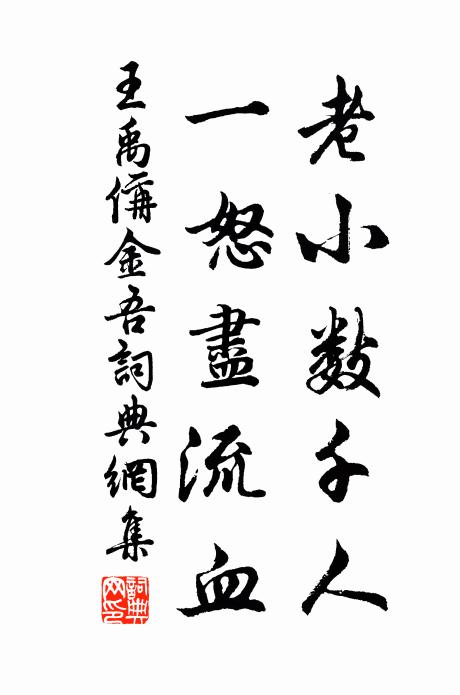 老小数千人
一怒盡流血
王禹偁金吾詞典網集
詞典網印